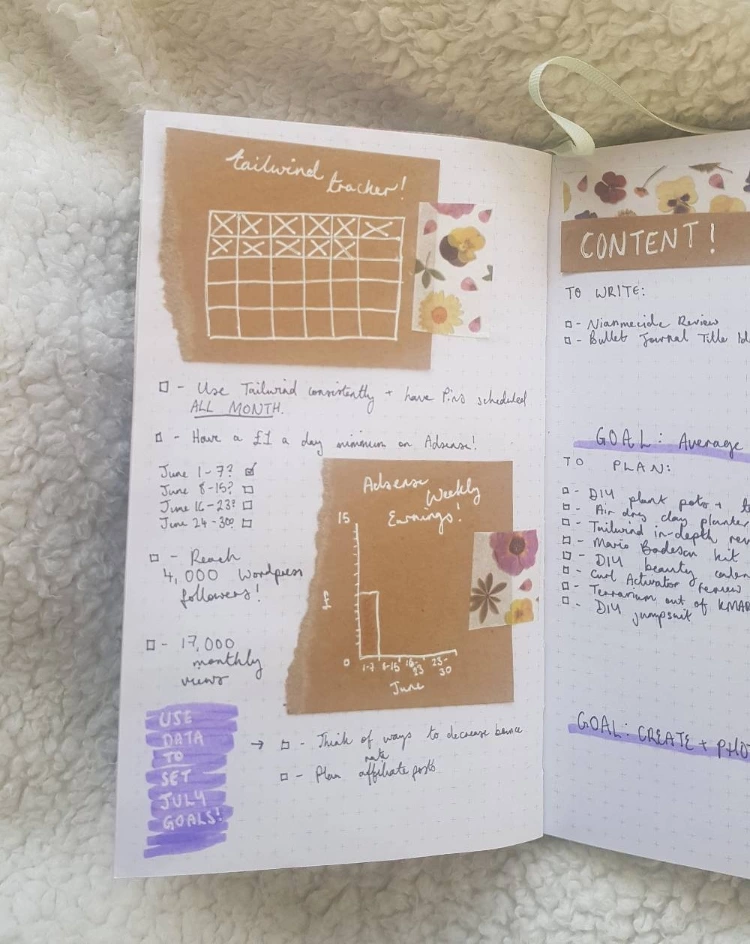 tailwind
tracker!
□ - Use Tailwind consistently + have Pins scheduled
ALL MONTH.
□ - Have a £1 a day minimum on Adsense!
June 1-7? ☑
June 8-15? □
June 16-23? □
June 24-30? □
Adsense Weekly
Earnings!
15
£
0
1-7 8-15 16-23 23-30
June
□ - Reach
4,000 Wordpress
followers!
□ - 17,000
monthly
views
USE
DATA
TO
SET
JULY
GOALS!
→ □ - Think of ways to decrease bounce
rate
□ - Plan affiliate posts
CONTENT!
TO WRITE:
□ - Review
□ - Bullet Journal Title
GOAL: Average
TO PLAN:
□ - DIY plant pots +
□ - Air dry clay planter
□ - Tailwind in-depth
□ - Mario Badescu kit
□ - DIY beauty
□ - Curl Activator review
□ - Terrarium out of
□ - DIY jumpsuit
GOAL: CREATE +